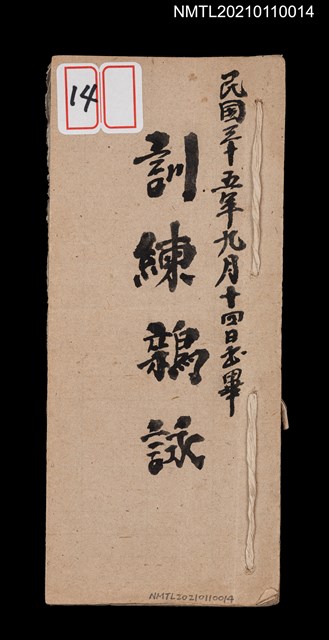 NMTL20210110014
14
民国三十五年九月十四日書畢
訓練鷄詠
NMTL20210110014